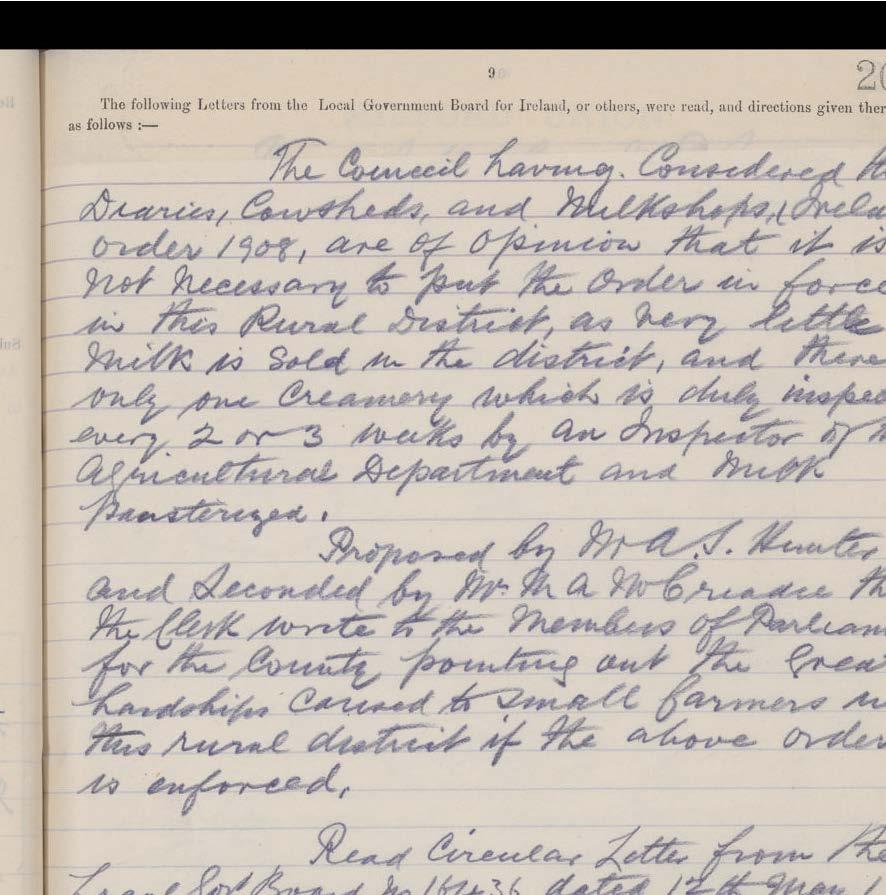 9
20
The following Letters from the Local Government Board for Ireland, or others, were read, and directions given ther
as follows :—
The Council having. Considered th
Diaries, Cowsheds, and Milkshops, (Irela
order 1908, are of opinion that it is
not necessary to put the Order in force
in this Rural District, as very little
Milk is sold in the district, and there
only one Creamery which is duly inspec
every 2 or 3 weeks by an Inspector of
Agricultural Department and Milk
Pausterized.
Proposed by Mr A. S. Hunter
and Seconded by Mr. M A McCreadie th
the Clerk write to the Members of Parliam
for the County pointing out the Grea
hardships caused to small farmers in
this rural district if the above order
is enforced,
Read Circular Letter from the
Govt Board No dated 12th May